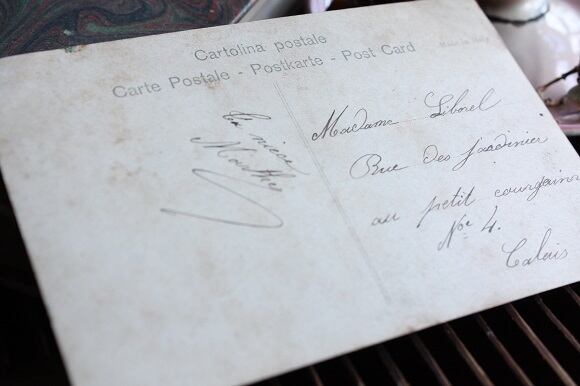 Cartolina postale
Carte Postale - Postkarte - Post Card
Made in Italy
Ta niece
Marthe
Madame Liborel
Rue des jardinier
au petit courgain
Nº 4.
Calais